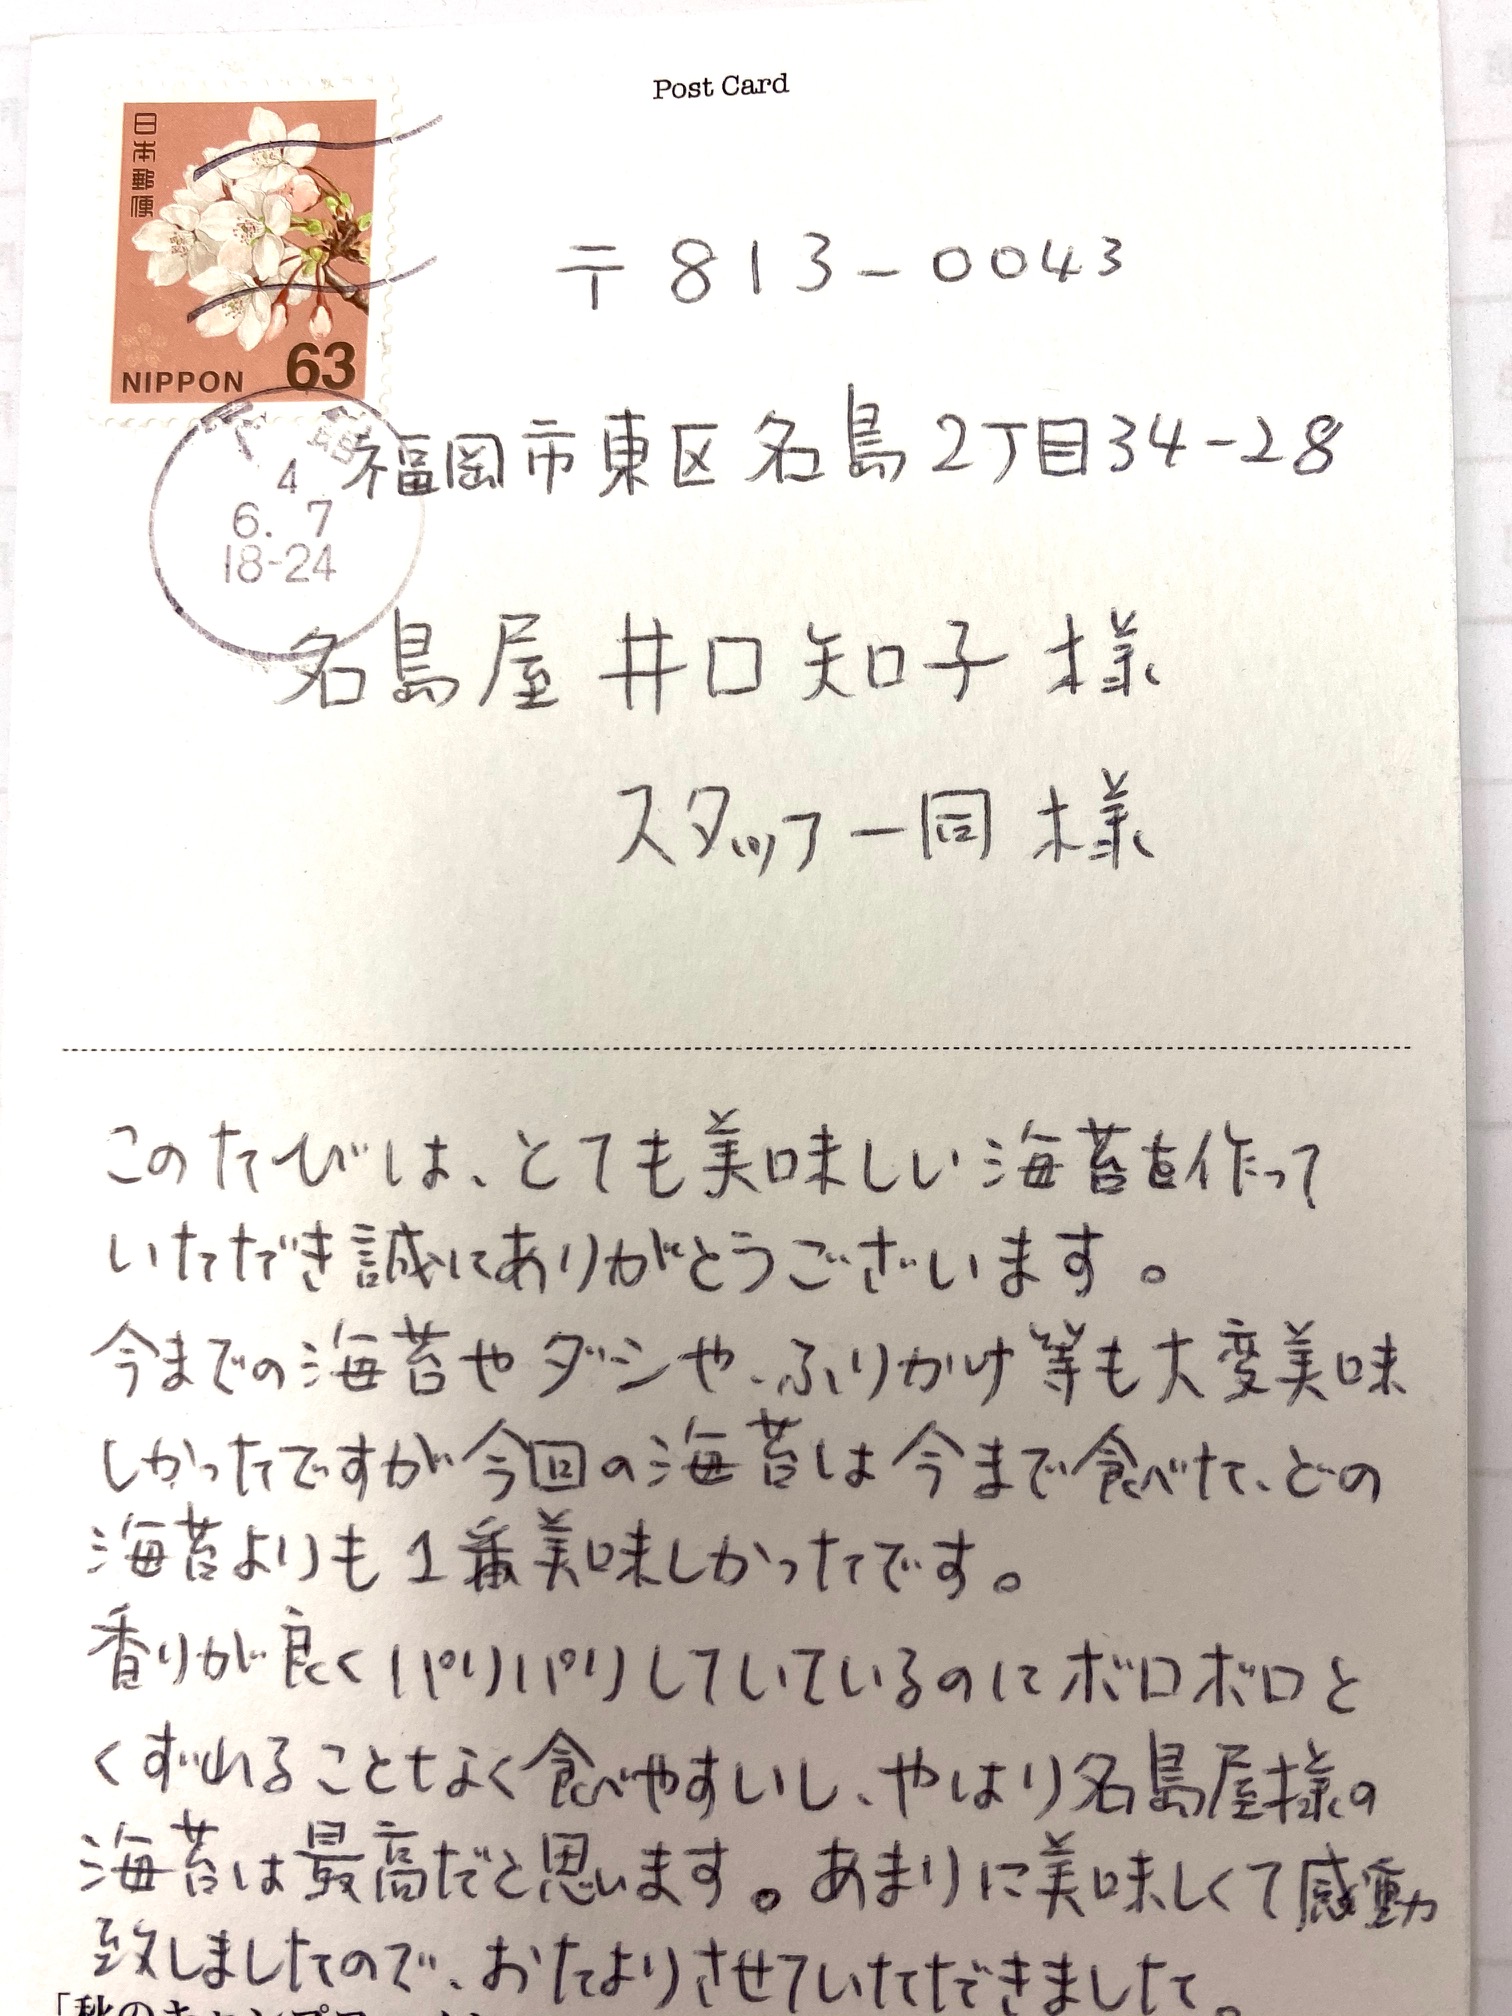 Post Card
日本郵便
NIPPON 63
〒813-0043
福岡市東区名島2丁目34-28
4
6. 7
18-24
名島屋 井口知子 様
スタッフ一同 様
このたびは、とても美味しい海苔を作って
いただき誠にありがとうございます。
今までの海苔やダシや、ふりかけ等も大変美味
しかったですが今回の海苔は今まで食べた、どの
海苔よりも1番美味しかったです。
香りが良くパリパリしていているのにボロボロと
くずれることなく食べやすいし、やはり名島屋様の
海苔は最高だと思います。あまりに美味しくて感動
致しましたので、おたよりさせていただきました。